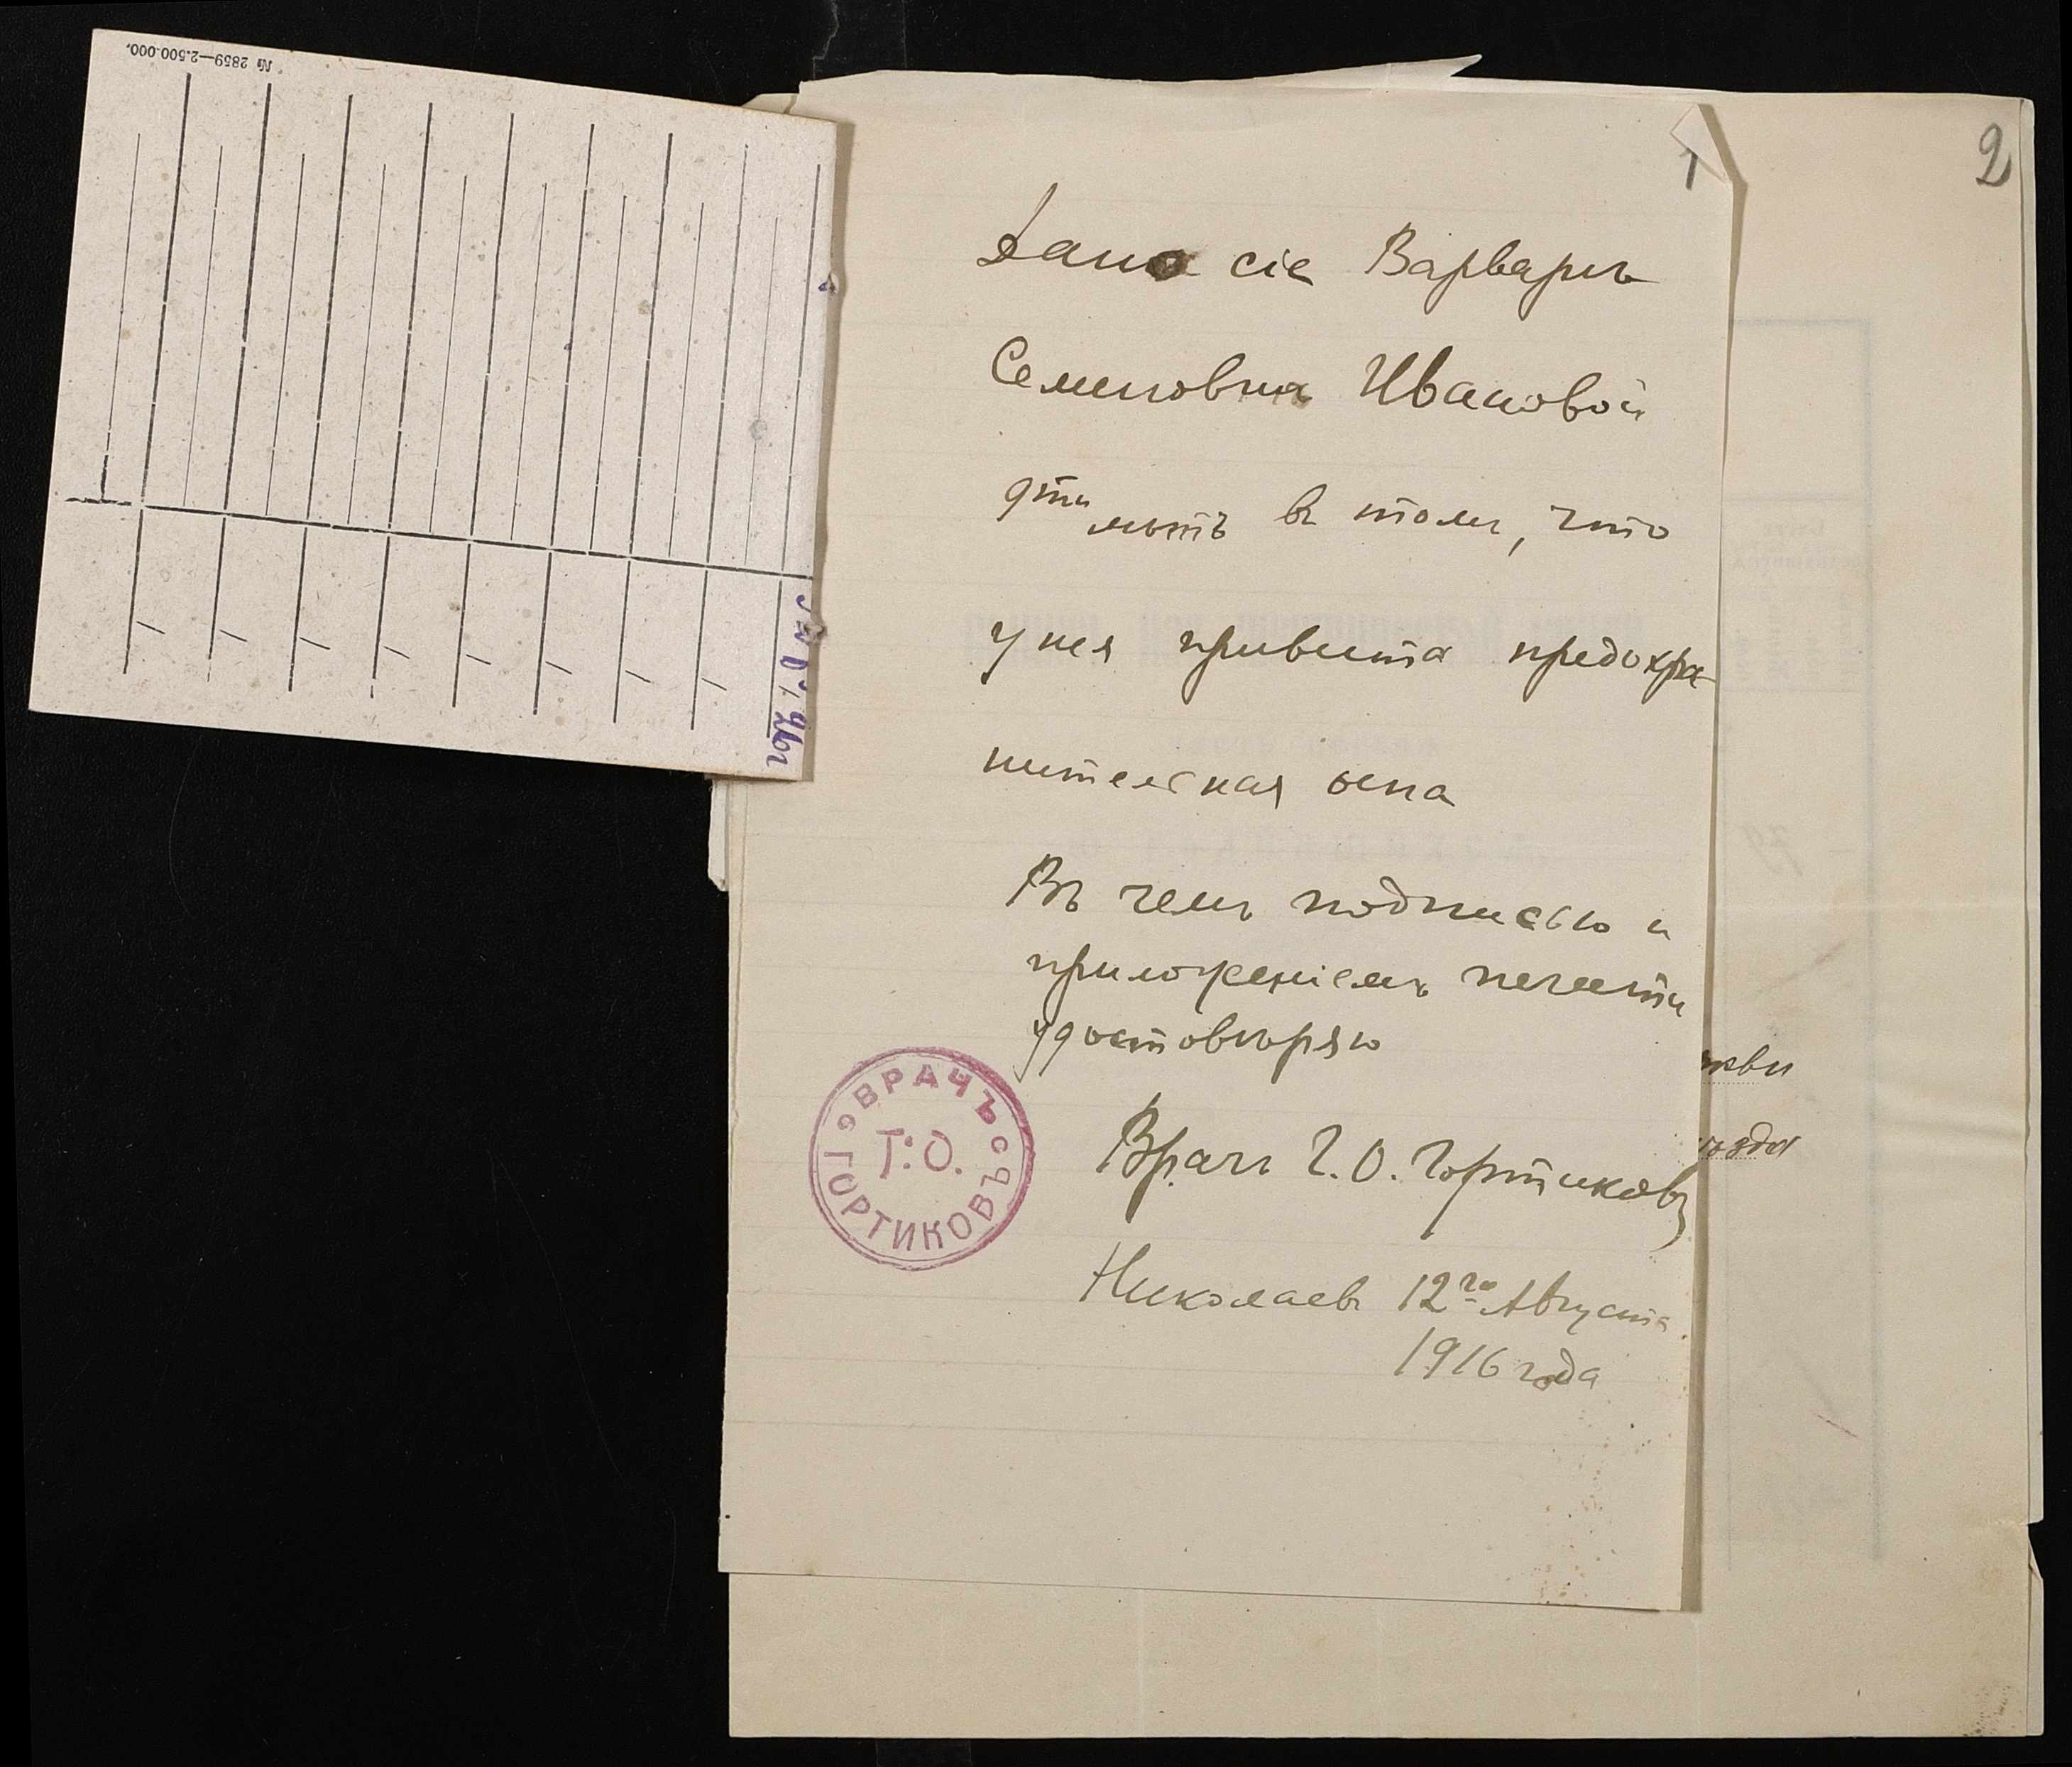 № 2859—2.500.000.
1
2
Дано сіе Варваръ
Семеновна Ивановой
лѣтъ въ томъ, что
у нея привита предохра-
нительная оспа
Въ чемъ подписью и
приложеніемъ печати
удостовѣряю
ВРАЧЪ
Г.О.
ГОРТИКОВЪ
Врачъ Г. О. Гортиковъ
Николаевъ 12го Августа
1916 года